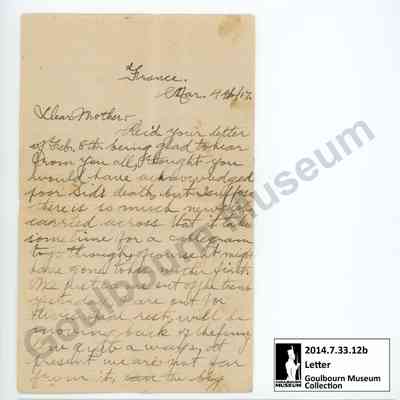 France.
Mar. 4th/17.
Dear Mother,
Rec'd your letter
of Feb. 8th. being glad to hear
from you all, I thought you
would have acknowledged
poor Sid's death, but I suppose
there is so much
carried across that it
some time for a cablegram
to go through, of course it might
have gone to first.
We just out of the
we are out for
rest, will be
moving back of the
line quite a ways, at
present we are not far
from it, the big
Goulbourn Museum
2014.7.33.12b
Letter
Goulbourn Museum
Collection
GOULBOURN
MUSEUM